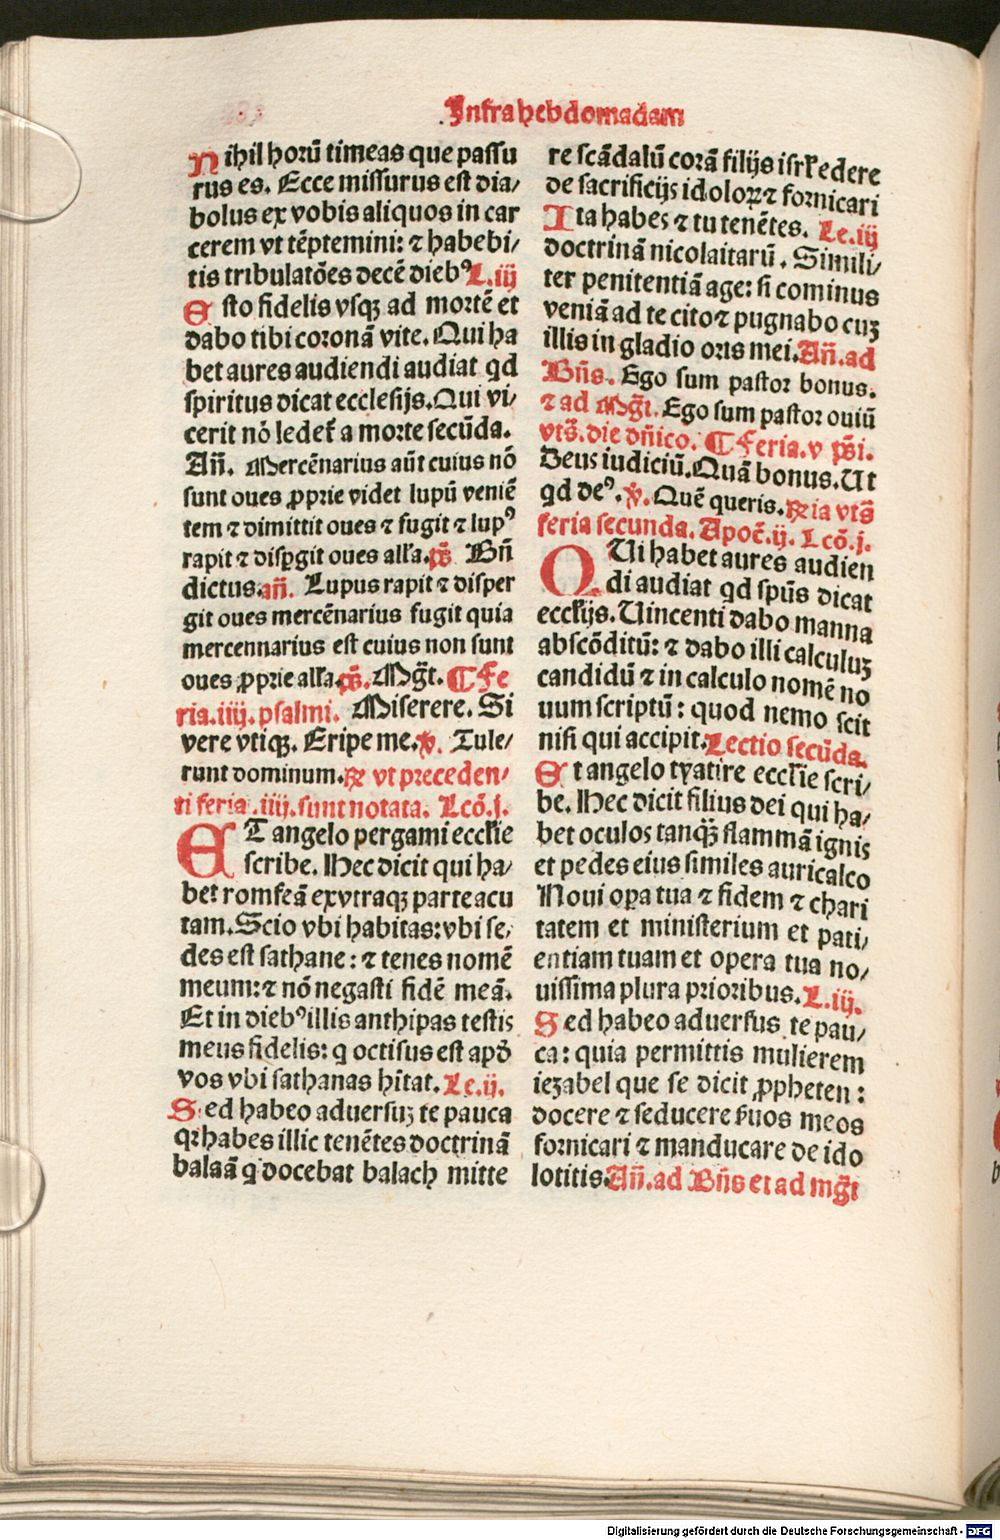 Infra hebdomadam
Nihil horū timeas que passu
rus es. Ecce missurus est dia/
bolus ex vobis aliquos in car
cerem vt tēptemini: ⁊ habebi/
tis tribulatōes decē diebꝰ L.iij
Esto fidelis vsqꝫ ad mortē et
dabo tibi coronā vite. Qui ha
bet aures audiendi audiat qd
spiritus dicat ecclesijs. Qui vi/
cerit nō ledet᷑ a morte secūda.
Añ. Mercēnarius aūt cuius nō
sunt oues ꝓprie videt lupū veniē
tem ⁊ dimittit oues ⁊ fugit ⁊ lupꝰ
rapit ⁊ disꝑgit oues alľa. p̄s. Bn̄
dictus. añ. Lupus rapit ⁊ disper
git oues mercēnarius fugit quia
mercennarius est cuius non sunt
oues ꝓprie alľa. p̄s. Mg̅t. ¶ Fe
ria.iiij. psalmi. Miserere. Si
vere vtiqꝫ. Eripe me. ℣. Tule/
runt dominum. ℞ vt preceden/
ti feria.iiij. sunt notata. Lcō.j.
ET angelo pergami eccľie
scribe. Hec dicit qui ha/
bet romfeā ex vtraqꝫ parte acu
tam. Scio vbi habitas: vbi se/
des est sathane: ⁊ tenes nomē
meum: ⁊ nō negasti fidē meā.
Et in diebꝰ illis anthipas testis
meus fidelis: q octisus est apd̄
vos vbi sathanas hītat. Le.ij.
Sed habeo aduersuꝫ te pauca
qꝛ habes illic tenētes doctrinā
balaā q̇ docebat balach mitte
re scādalū corā filijs isrľ edere
de sacrificijs idoloꝝ ⁊ fornicari
Ita habes ⁊ tu tenētes. Le.iij
doctrinā nicolaitarū. Simili/
ter penitentiā age: si cominus
veniā ad te cito ⁊ pugnabo cuꝫ
illis in gladio oris mei. Añ. ad
Bn̄s. Ego sum pastor bonus.
⁊ ad Mg̅t. Ego sum pastor ouiū
vts̄. die dn̄ico. ¶ Feria.v p̄si.
Deus iudiciū. Quā bonus. Ut
qd deꝰ. ℣. Quē queris. ℞ia vts̄
feria secunda. Apoc̄.ij. Lcō.j.
QUi habet aures audien
di audiat qd spūs dicat
eccľijs. Uincenti dabo manna
abscōditū: ⁊ dabo illi calculuꝫ
candidū ⁊ in calculo nomē no
uum scriptū: quod nemo scit
nisi qui accipit. Lectio secūda.
Et angelo tyatire eccľie scri/
be. Hec dicit filius dei qui ha/
bet oculos tanqꝫ̄ flammā ignis
et pedes eius similes auricalco
Noui oꝑa tua ⁊ fidem ⁊ chari
tatem et ministerium et pati/
entiam tuam et opera tua no/
uissima plura prioribus. L.iij.
Sed habeo aduersus te pau/
ca: quia permittis mulierem
iezabel que se dicit ꝓpheten:
docere ⁊ seducere ẜuos meos
fornicari ⁊ manducare de ido
lotitis. Añ. ad Bn̄s et ad mg̅t
Digitalisierung gefördert durch die Deutsche Forschungsgemeinschaft - DFG